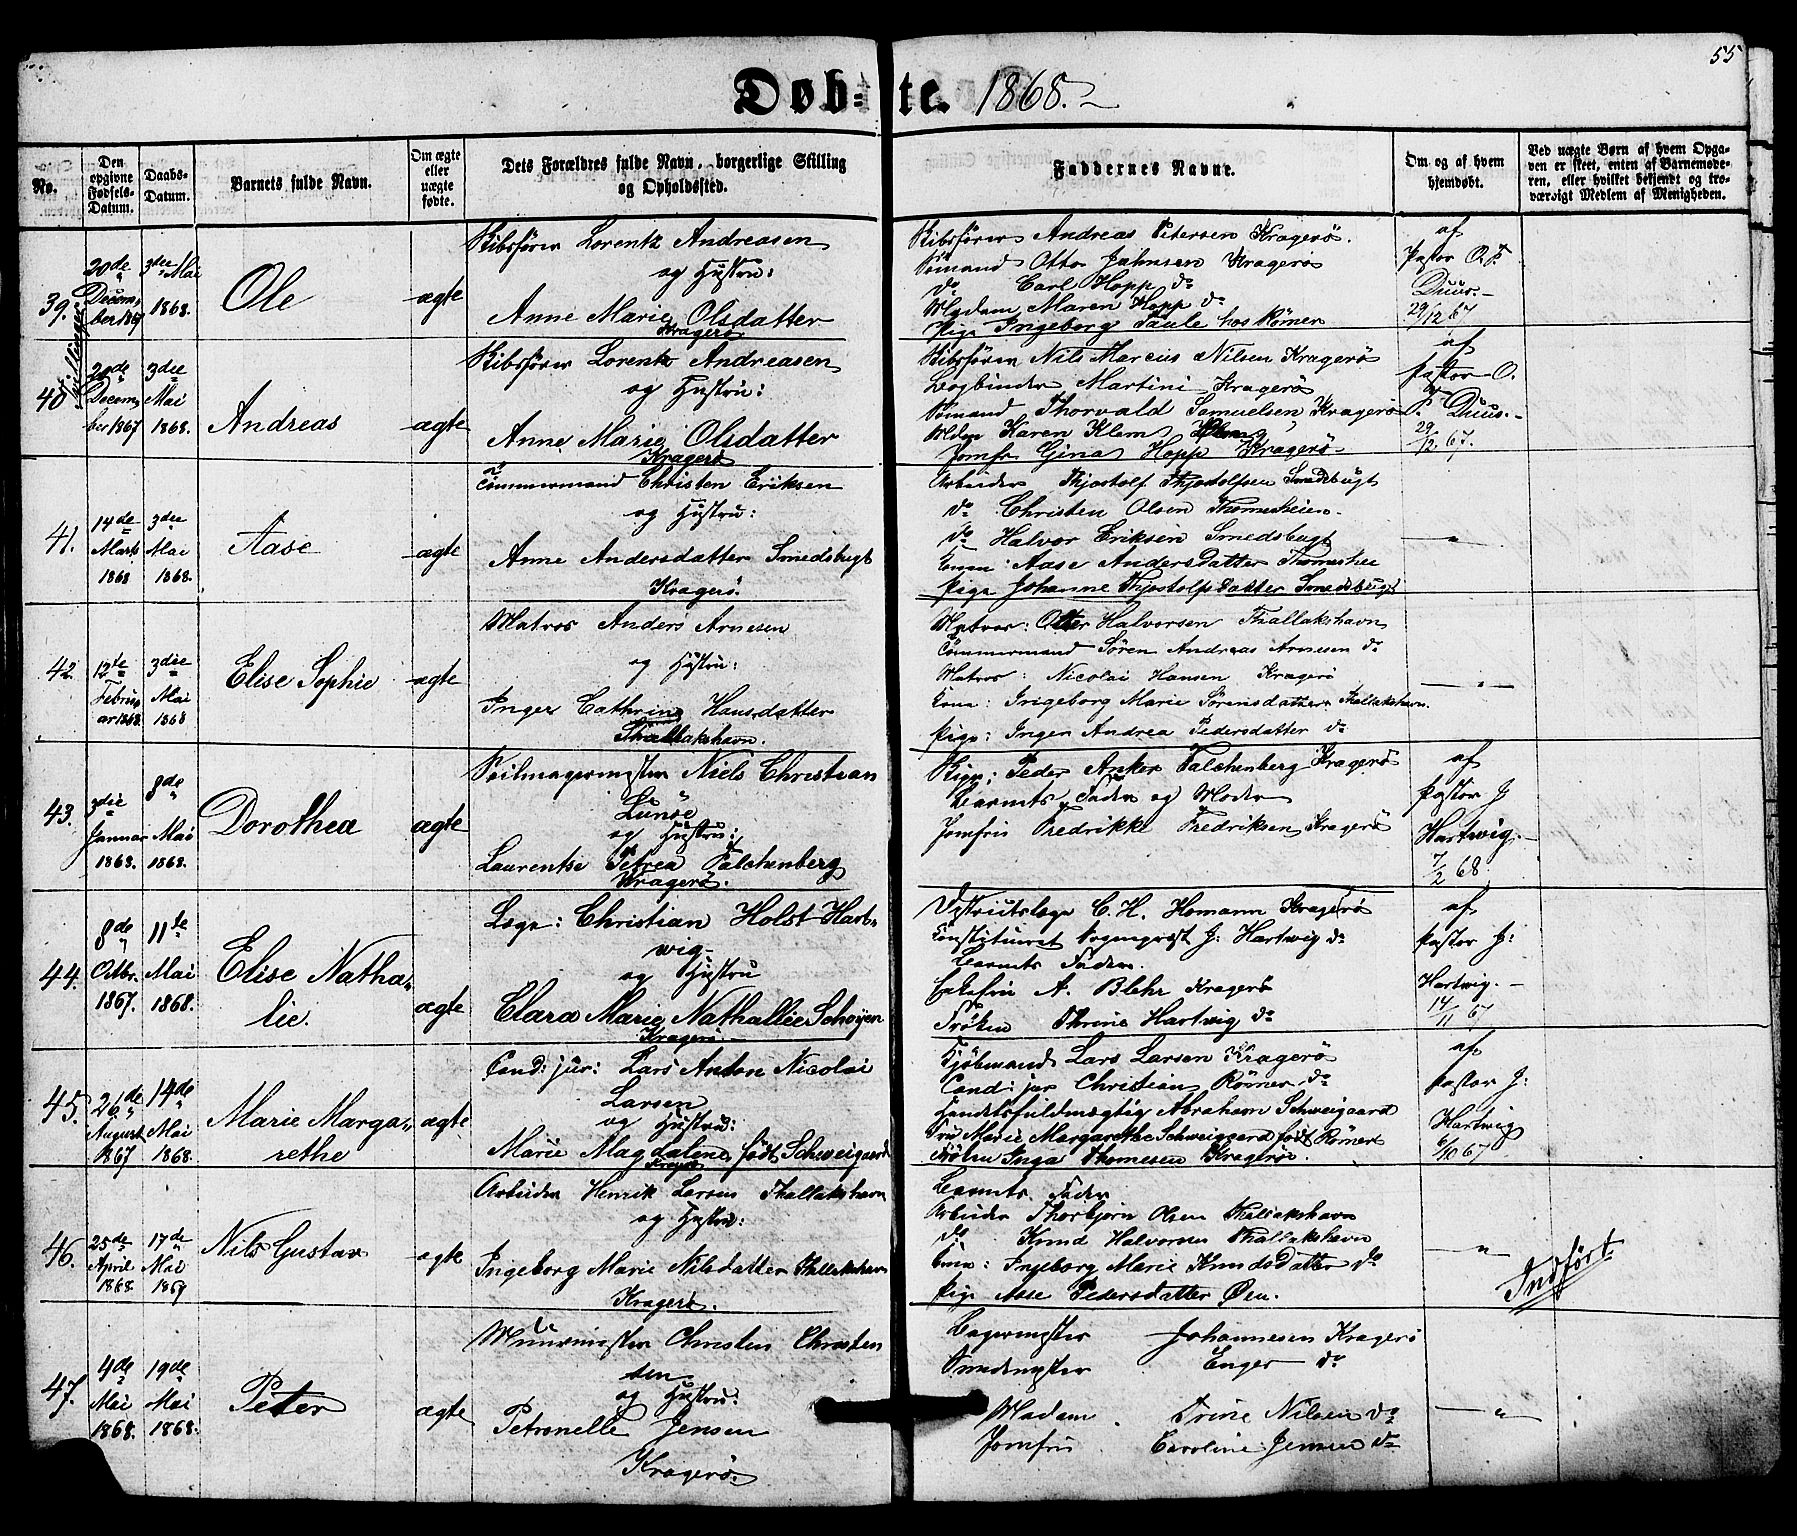 55
Døb-te. 1868.
No.
Den opgivne Fødsels-Datum.
Daabs-Datum.
Barnets fulde Navn.
Om ægte eller uægte fødte.
Dets Forældres fulde Navn, borgerlige Stilling og Opholdssted.
Faddernes Navne.
Om og af hvem hjemdøbt.
Ved uægte Børn af hvem Opgaven er skeet, enten af Barnemoderen, eller hvilket bekjendt og troværdigt Medlem af Menigheden.
39.
20de Decem,ber 1867
3die Mai 1868.
Ole
ægte
Skibsfører Lorentz Andreasen
og Hustru:
Anne Marie Olsdatter
Kragerø
Skibsfører Andreas Petersen Kragerø.
Sömand Otto Jahnsen Kragerö
do Carl Hopp do
Madam Maren Hopp do
Pige Ingeborg hos Römer
af
Pastor O. F.
Duus.
29/12 67
Tvillinger
40.
20de Decem,ber 1867
3die Mai 1868.
Andreas
ægte
Skibsfører Lorentz Andreasen
og Hustru:
Anne Marie Olsdatter
Kragerø
Skibsfören Nils Marcus Nilsen Kragerö
Bogbinder Martini Kragerö
Sömand Thorvald Samuelsen Kragerö
Mdm Karen Klem
Jomfr Gina Hopp Kragerö
af
Pastor O.
F. Duus.
29/12 67.
41.
14de Marts 1868
3die Mai 1868.
Aase
ægte
Tömmermand Christen Eriksen
og Hustru:
Anne Andersdatter Smedsbugt
Kragerö.
Arbeider Thjostolf Thjostolfsen Smedsbugt
do Christen Olsen Thomesheien
do Halvor Eriksen Smedsbugt
Kone: Aase Andersdatter Thomeshei
Pige Johanne Thjostolfsdatter Smedsbugt
— " —
42.
12te Februar 1868.
3die Mai 1868
Elise Sophie
ægte
Matros Anders Arnesen
og Hustru:
Inger Cathrine Hansdatter
Thallakshavn.
Matros: Otter Halvorsen Thallakshavn
Tömmermand Sören Andreas Arnesen do
Matros: Nicolai Hansen Kragerö
Kone: Ingeborg Marie Sörensdatter Thallakshavn.
Pige: Inger Andrea Pedersdatter do
— " —
43.
3die Januar 1868.
8de Mai 1868.
Dorothea
ægte
Seilmagermester Niels Christian
Lunöe
og Hustru:
Laurentse Petrea Falchenberg
Kragerö.
Skipp: Peder Anker Falchenberg Kragerö
Barnets Fader og Moder
Jomfru Fredrikke Fredriksen Kragerö
af
Pastor J
Hartwig.
7/2 68
44.
8de Octbr. 1867.
11te Mai 1868.
Elise Natha-
lie.
ægte
Læge: Christian Holst Hart-
wig
og Hustru
Clara Marie Nathallie Schöyen
Kragerö.
Districtslæge C. H. Homann Kragerö
Constitueret Sogneprest J: Hartwig do
Barnets Fader.
Enkefru A. Blehr Kragerö
Fröken Thrine Hartwig do
af
Pastor J:
Hartwig.
14/11 67
45.
26de August 1867
14de Mai 1868.
Marie Marga-
rethe
ægte
Cand: jur: Lars Anton Nicolai
Larsen
og Hustru:
Marie Magdalene, født Schweigaard
Kragerö
Kjöbmand Lars Larsen Kragerö
Cand: jur Christian Römer do
Handelsfuldmægtig Abraham Schweigaard
Fru Marie Margarethe Schweigaard født Römer
Fröken Inga Thomesen Kragerö.
af
Pastor J:
Hartwig
6/10 67
46.
25de April 1868.
17de Mai 1869
Nils Gustav
ægte
Arbeider Henrik Larsen Thallakshavn
og Hustru:
Ingeborg Marie Nilsdatter Thallakshavn
Kragerö.
Barnets Fader
Arbeider Thorbjørn Olsen Thallakshavn
do Knud Halvorsen Thallakshavn
Kone: Ingeborg Marie Knudsdatter do
Pige Aase Pedersdatter Øen.
— " —
Indført
47.
4de Mai 1868.
19de Mai 1868.
Peter
ægte
Muurmester Christen Christen
sen
og Hustru:
Petronelle Jensen
Kragerö.
Bagermester Johannesen Kragerö
Smedmester Enger do
Madam Trine Nilsen do
Jomfru Caroline Jensen do
— " —